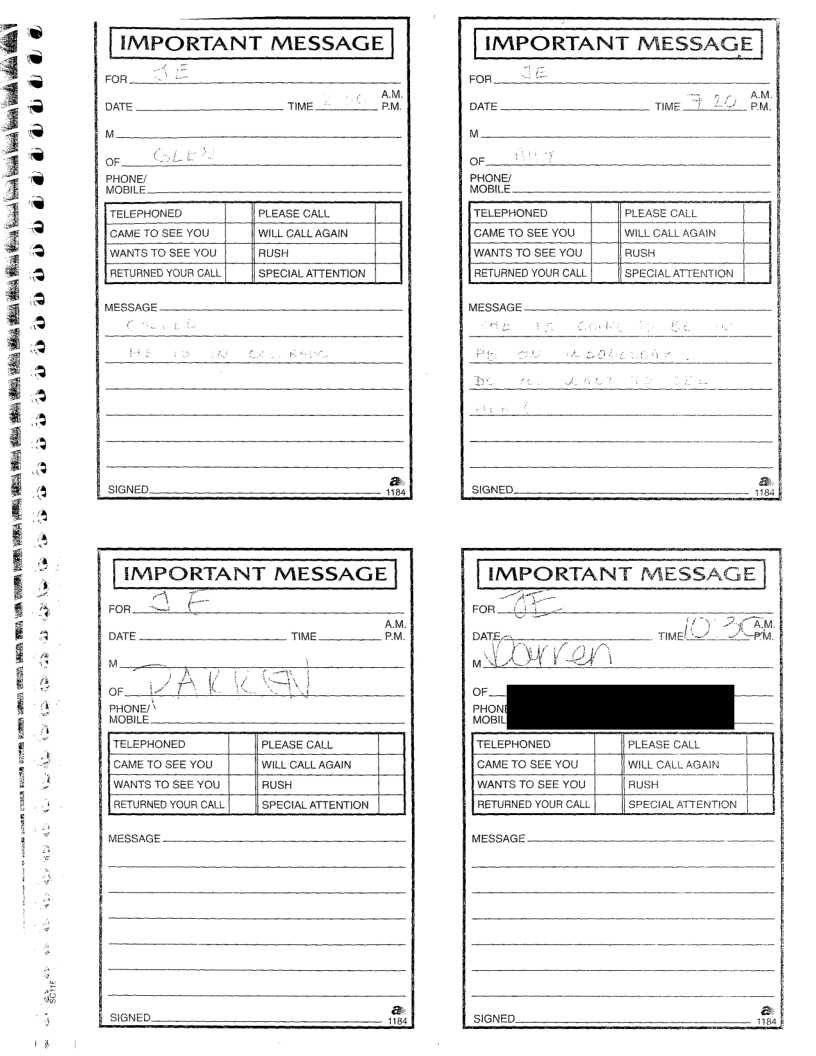 IMPORTANT MESSAGE
FOR JE
A.M.
DATE TIME P.M.
M
OF GLEN
PHONE/
MOBILE
TELEPHONED PLEASE CALL
CAME TO SEE YOU WILL CALL AGAIN
WANTS TO SEE YOU RUSH
RETURNED YOUR CALL SPECIAL ATTENTION
MESSAGE
CALLED
HE IS IN COLORADO
SIGNED
a
1184
IMPORTANT MESSAGE
FOR JE
A.M.
DATE TIME 7 20 P.M.
M
OF
PHONE/
MOBILE
TELEPHONED PLEASE CALL
CAME TO SEE YOU WILL CALL AGAIN
WANTS TO SEE YOU RUSH
RETURNED YOUR CALL SPECIAL ATTENTION
MESSAGE
IS GOING TO BE IN
PB ON WEDNESDAY.
DO YOU WANT TO SEE
SIGNED
a
1184
IMPORTANT MESSAGE
FOR JE
A.M.
DATE TIME P.M.
M
OF
PHONE/
MOBILE
TELEPHONED PLEASE CALL
CAME TO SEE YOU WILL CALL AGAIN
WANTS TO SEE YOU RUSH
RETURNED YOUR CALL SPECIAL ATTENTION
MESSAGE
SIGNED
a
1184
IMPORTANT MESSAGE
FOR JE
A.M.
DATE TIME 10:30 P.M.
M Darren
OF
PHONE
MOBIL
TELEPHONED PLEASE CALL
CAME TO SEE YOU WILL CALL AGAIN
WANTS TO SEE YOU RUSH
RETURNED YOUR CALL SPECIAL ATTENTION
MESSAGE
SIGNED
a
1184